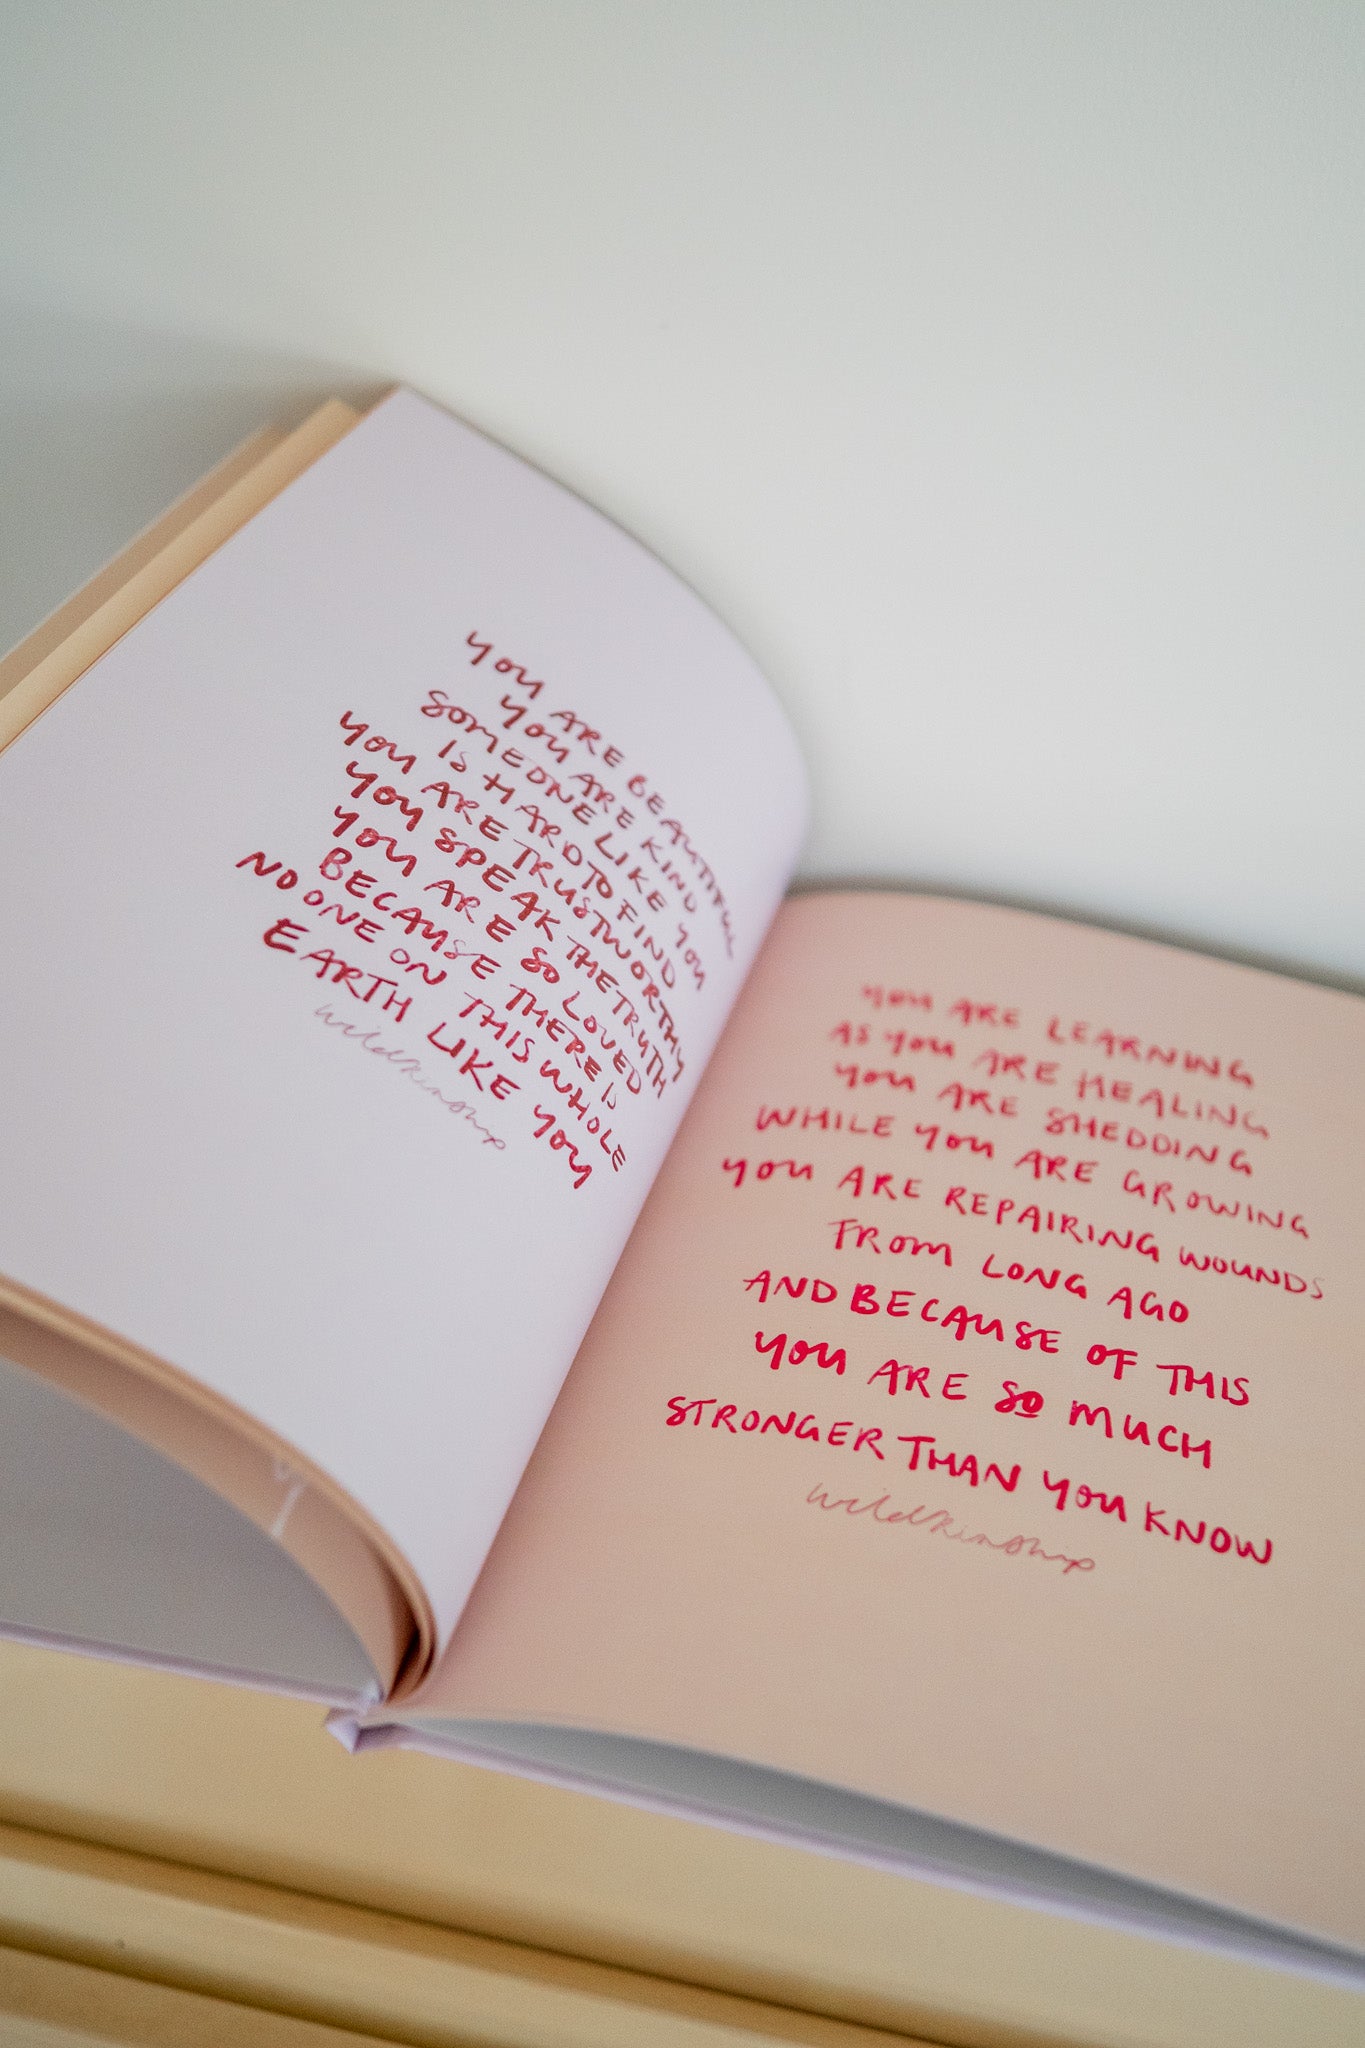 YOU ARE BEAUTIFUL
YOU ARE KIND
SOMEONE LIKE YOU
IS HARD TO FIND
YOU ARE TRUSTWORTHY
YOU SPEAK THE TRUTH
YOU ARE SO LOVED
BECAUSE THERE IS
NO ONE ON THIS WHOLE
EARTH LIKE YOU
wildkinship
YOU ARE LEARNING
AS YOU ARE HEALING
YOU ARE SHEDDING
WHILE YOU ARE GROWING
YOU ARE REPAIRING WOUNDS
FROM LONG AGO
AND BECAUSE OF THIS
YOU ARE SO MUCH
STRONGER THAN YOU KNOW
wildkinship